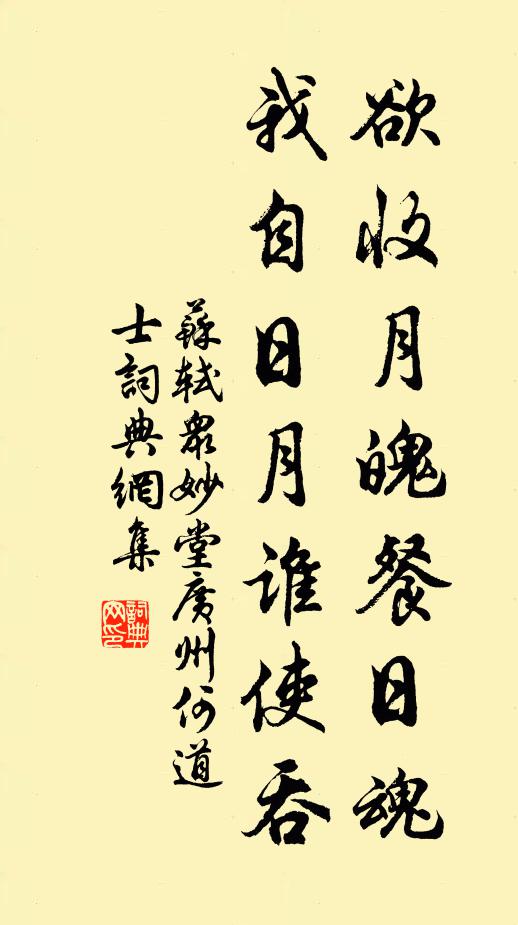 欲收月魄餐日魂
我自日月誰使吞
蘇軾眾妙堂廣州何道
士詞典網集
詞典
网印